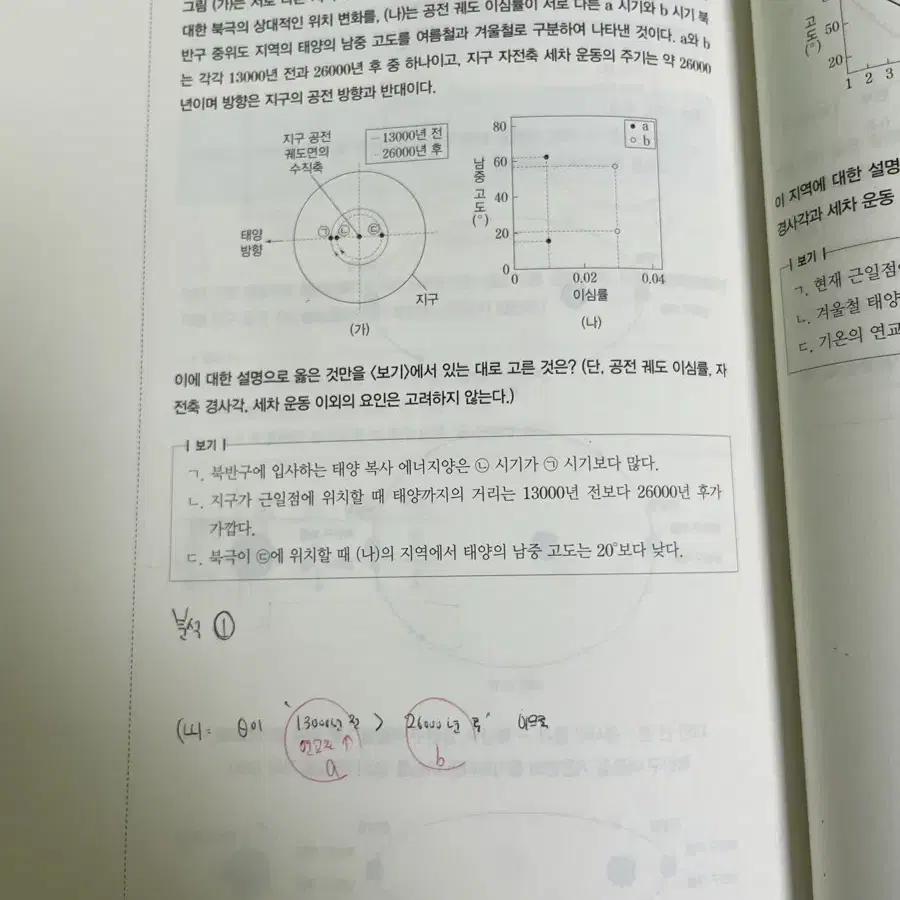 그림 (가)는 서로 다른
대한 북극의 상대적인 위치 변화를, (나)는 공전 궤도 이심률이 서로 다른 a 시기와 b 시기 북
반구 중위도 지역의 태양의 남중 고도를 여름철과 겨울철로 구분하여 나타낸 것이다. a와 b
는 각각 13000년 전과 26000년 후 중 하나이고, 지구 자전축 세차 운동의 주기는 약 26000
년이며 방향은 지구의 공전 방향과 반대이다.
지구 공전
궤도면의
수직축
13000년 전
26000년 후
태양
방향
㉠ ㉡ ㉢
지구
(가)
남중 고도(°)
80
60
40
20
0
0 0.02 0.04
이심률
a
b
(나)
이에 대한 설명으로 옳은 것만을 〈보기〉에서 있는 대로 고른 것은? (단, 공전 궤도 이심률, 자
전축 경사각, 세차 운동 이외의 요인은 고려하지 않는다.)
보기
ㄱ. 북반구에 입사하는 태양 복사 에너지양은 ㉡ 시기가 ㉠ 시기보다 많다.
ㄴ. 지구가 근일점에 위치할 때 태양까지의 거리는 13000년 전보다 26000년 후가
가깝다.
ㄷ. 북극이 ㉢에 위치할 때 (나)의 지역에서 태양의 남중 고도는 20°보다 낮다.
분석 ①
(나): θ이 '13000년 전 > 26000년 후' 이므로
연교차 ↑
a b
고도(°)
50
20
1 2 3
이 지역에 대한 설명
경사각과 세차 운동
보기
ㄱ. 현재 근일점에
ㄴ. 겨울철 태양
ㄷ. 기온의 연교